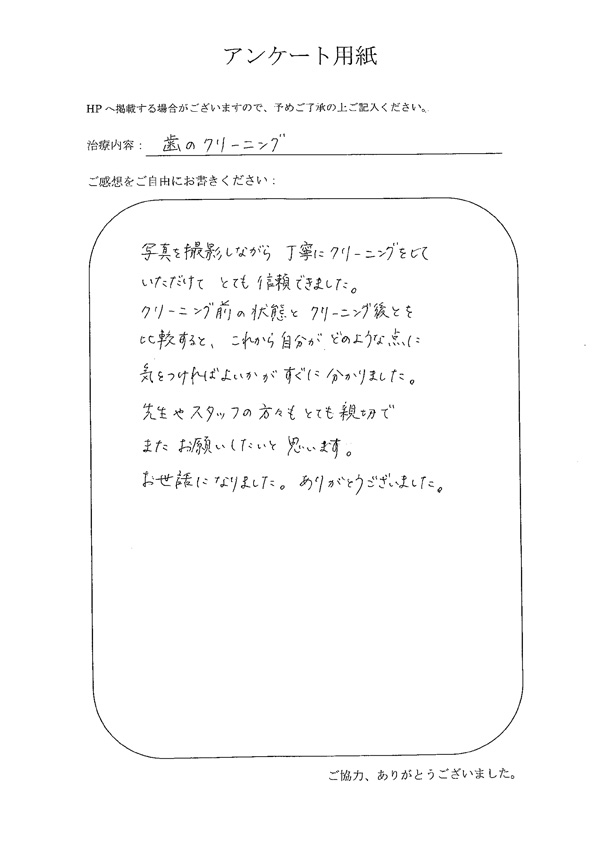 アンケート用紙
HPへ掲載する場合がございますので、予めご了承の上ご記入ください。
治療内容： 歯のクリーニング
ご感想をご自由にお書きください：
写真を撮影しながら 丁寧にクリーニングをして
いただけて とても信頼できました。
クリーニング前の状態と クリーニング後とを
比較すると、これから自分が どのような点に
気をつければよいかが すぐに分かりました。
先生やスタッフの方々も とても親切で
また お願いしたいと 思います。
お世話になりました。ありがとうございました。
ご協力、ありがとうございました。